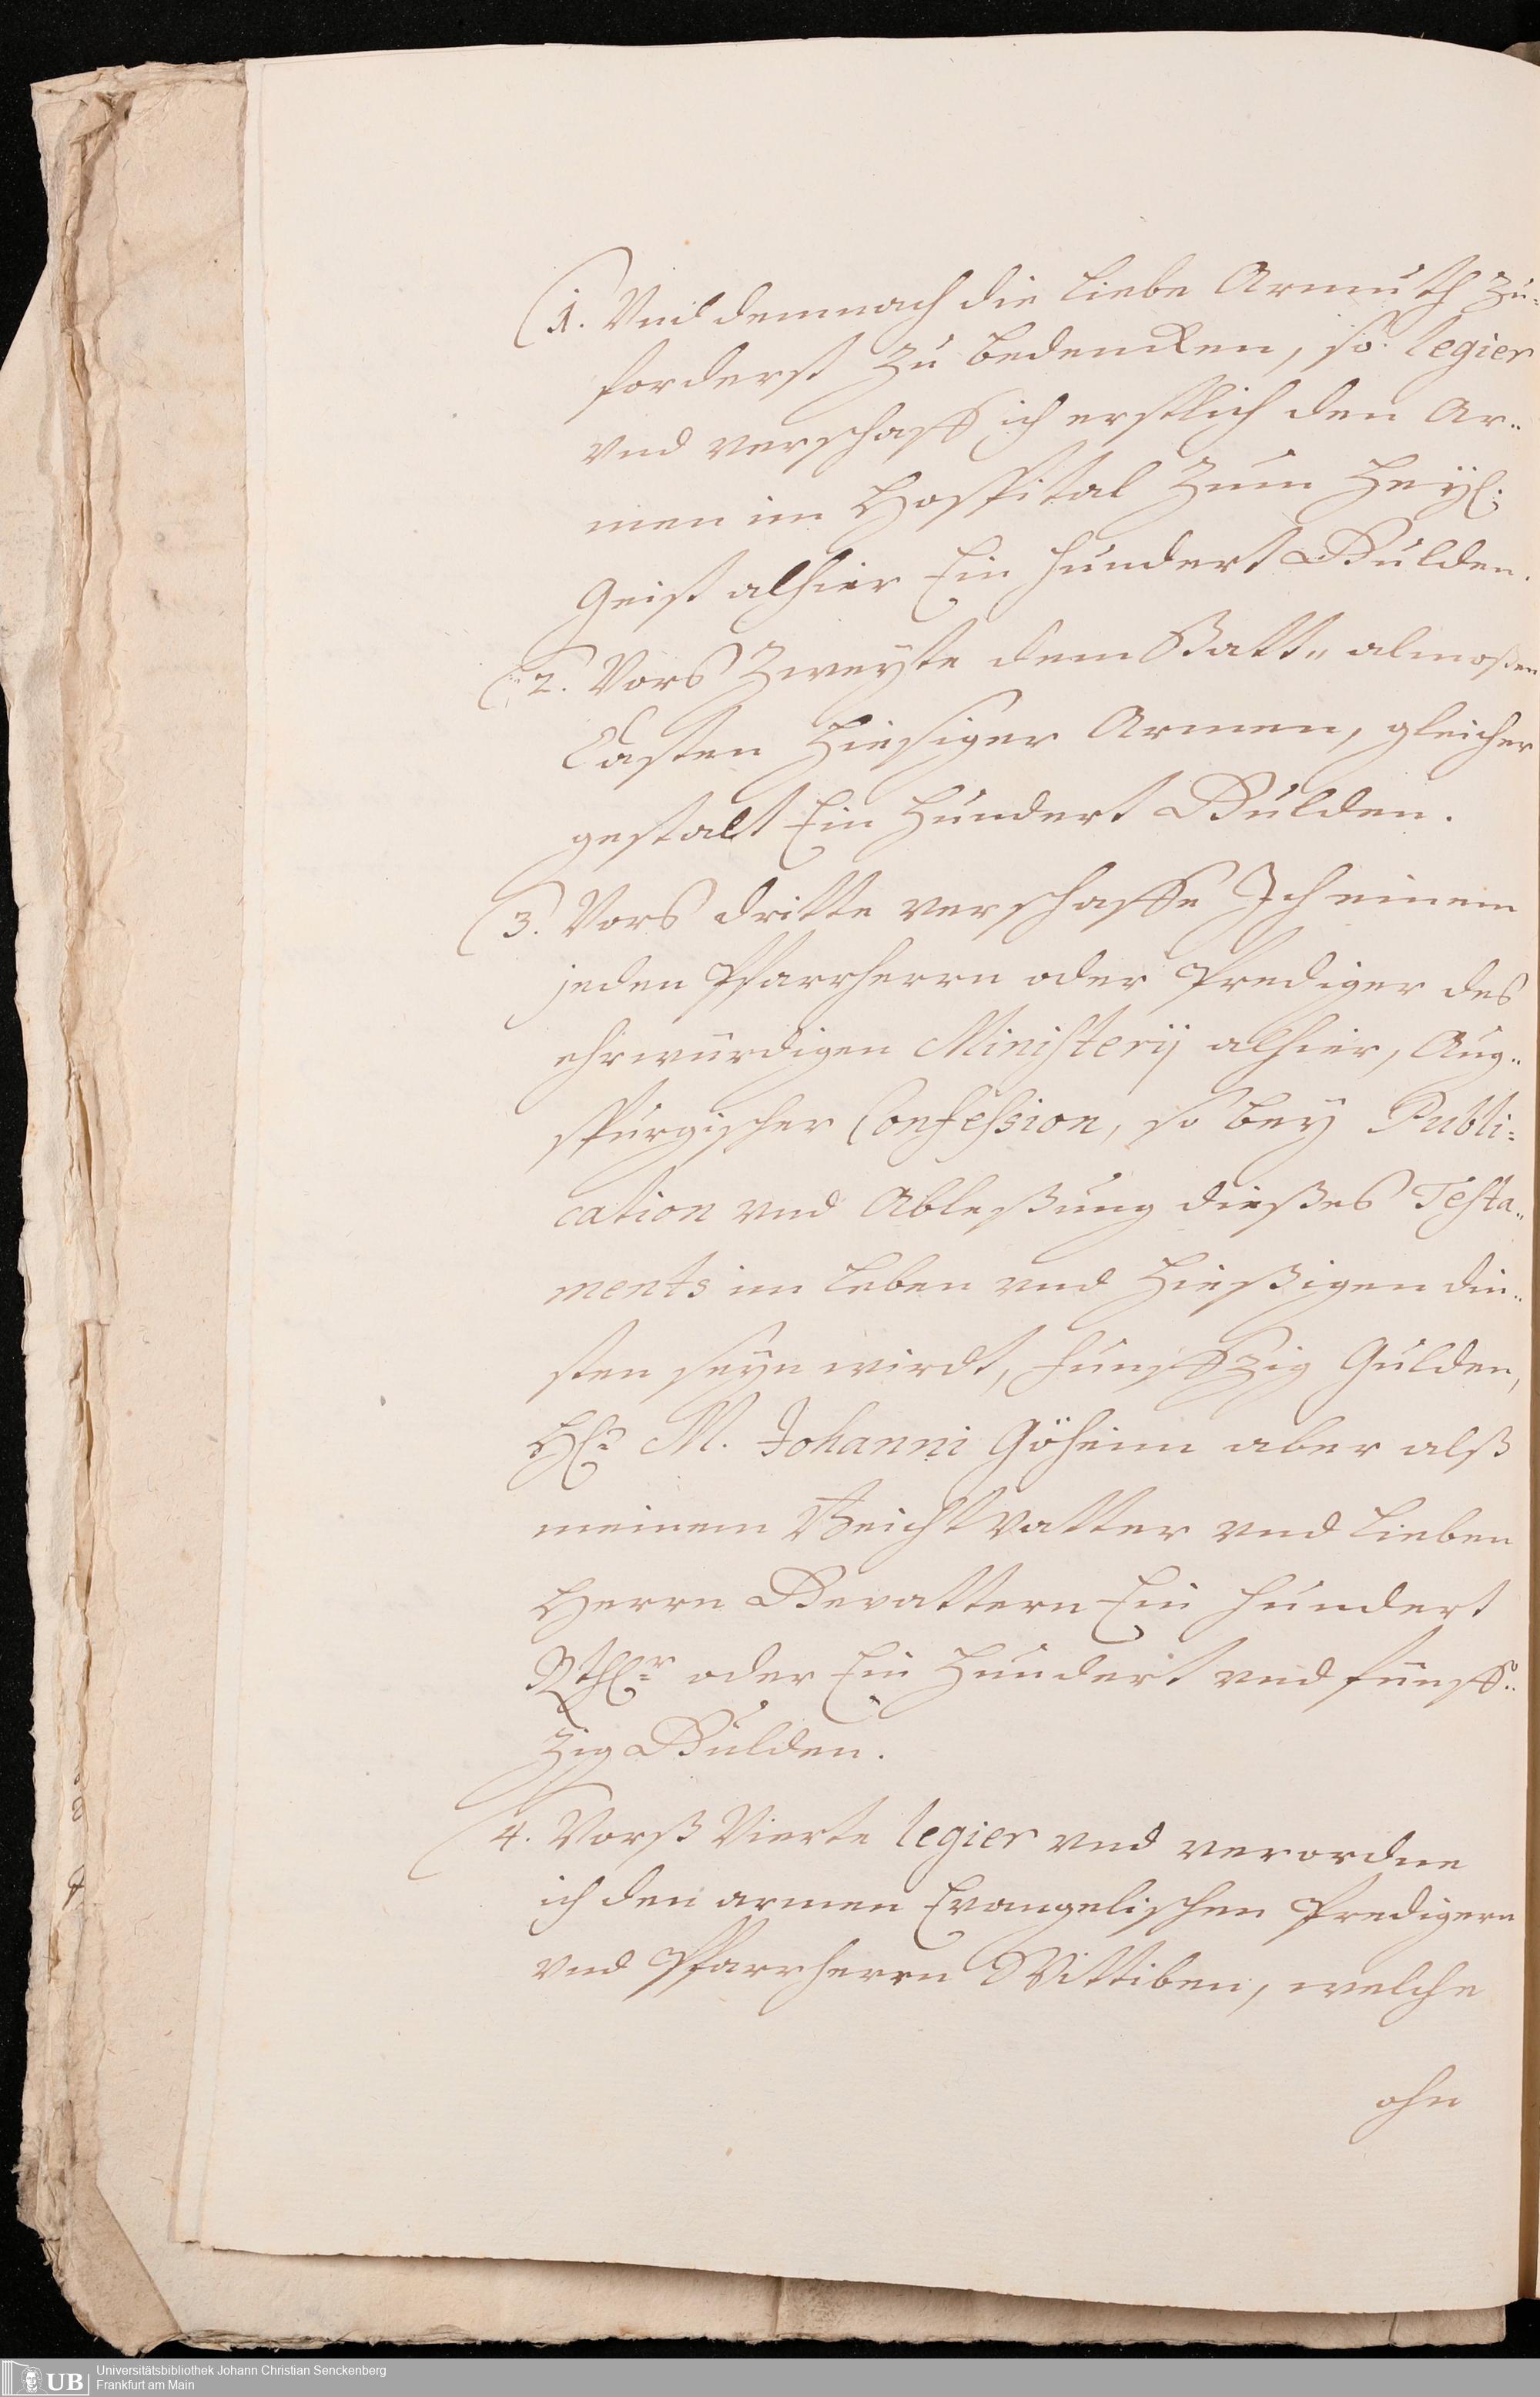 (1. Vnd demnach die liebe Armuth zu-
forderst zu bedencken, so legier
vnd verschaff ich erstlich den Ar-
men im Hospital zum Heyl:
Geist alhier Ein hundert Gulden.
(2. Vors Zweyte dem almoßen
Casten hiesiger Armen, gleicher
gestalt Ein hundert Gulden.
(3. Vors dritte verschaffe Ich einem
jeden Pfarrherrn oder Prediger des
ehrwürdigen Ministerij alhier, Aug-
spurgischer Confession, so bey Publi-
cation vnd Ableßung dießes Testa-
ments im leben vnd hießigen din-
sten seyn wirdt, funffzig Gulden,
H. M. Johanni aber alß
meinem Beichtvatter vnd lieben
Herrn Gevattern Ein hundert
Rthlr oder Ein hundert vnd funff-
zig Gulden.
(4. Vorß Vierte legier vnd verordne
ich den armen Evangelischen Predigern
vnd Pfarrherrn Wittiben, welche
ohn
UB Universitätsbibliothek Johann Christian Senckenberg
Frankfurt am Main